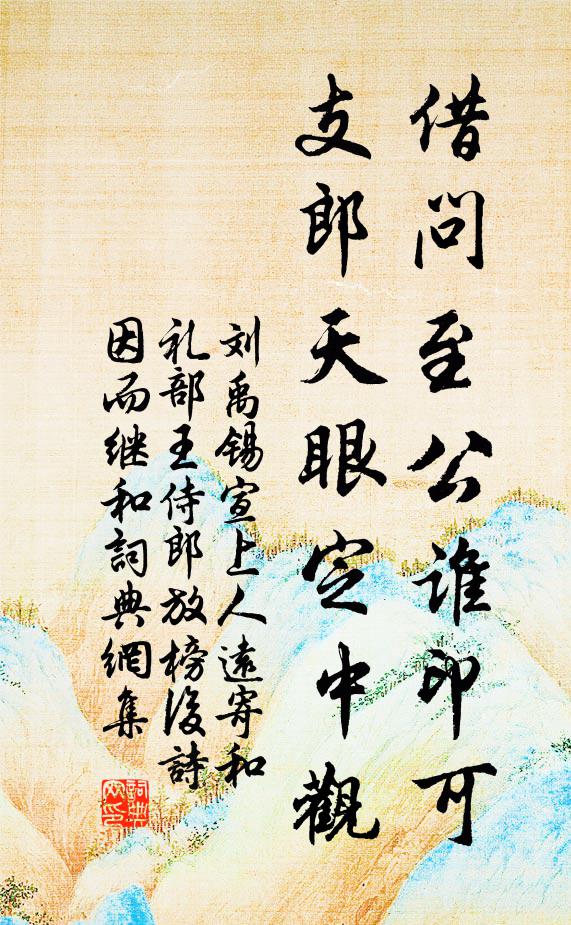 借问至公谁印可
支郎天眼定中觀
刘禹锡宣上人遠寄和
礼部王侍郎放榜後詩
因而继和詞典網集